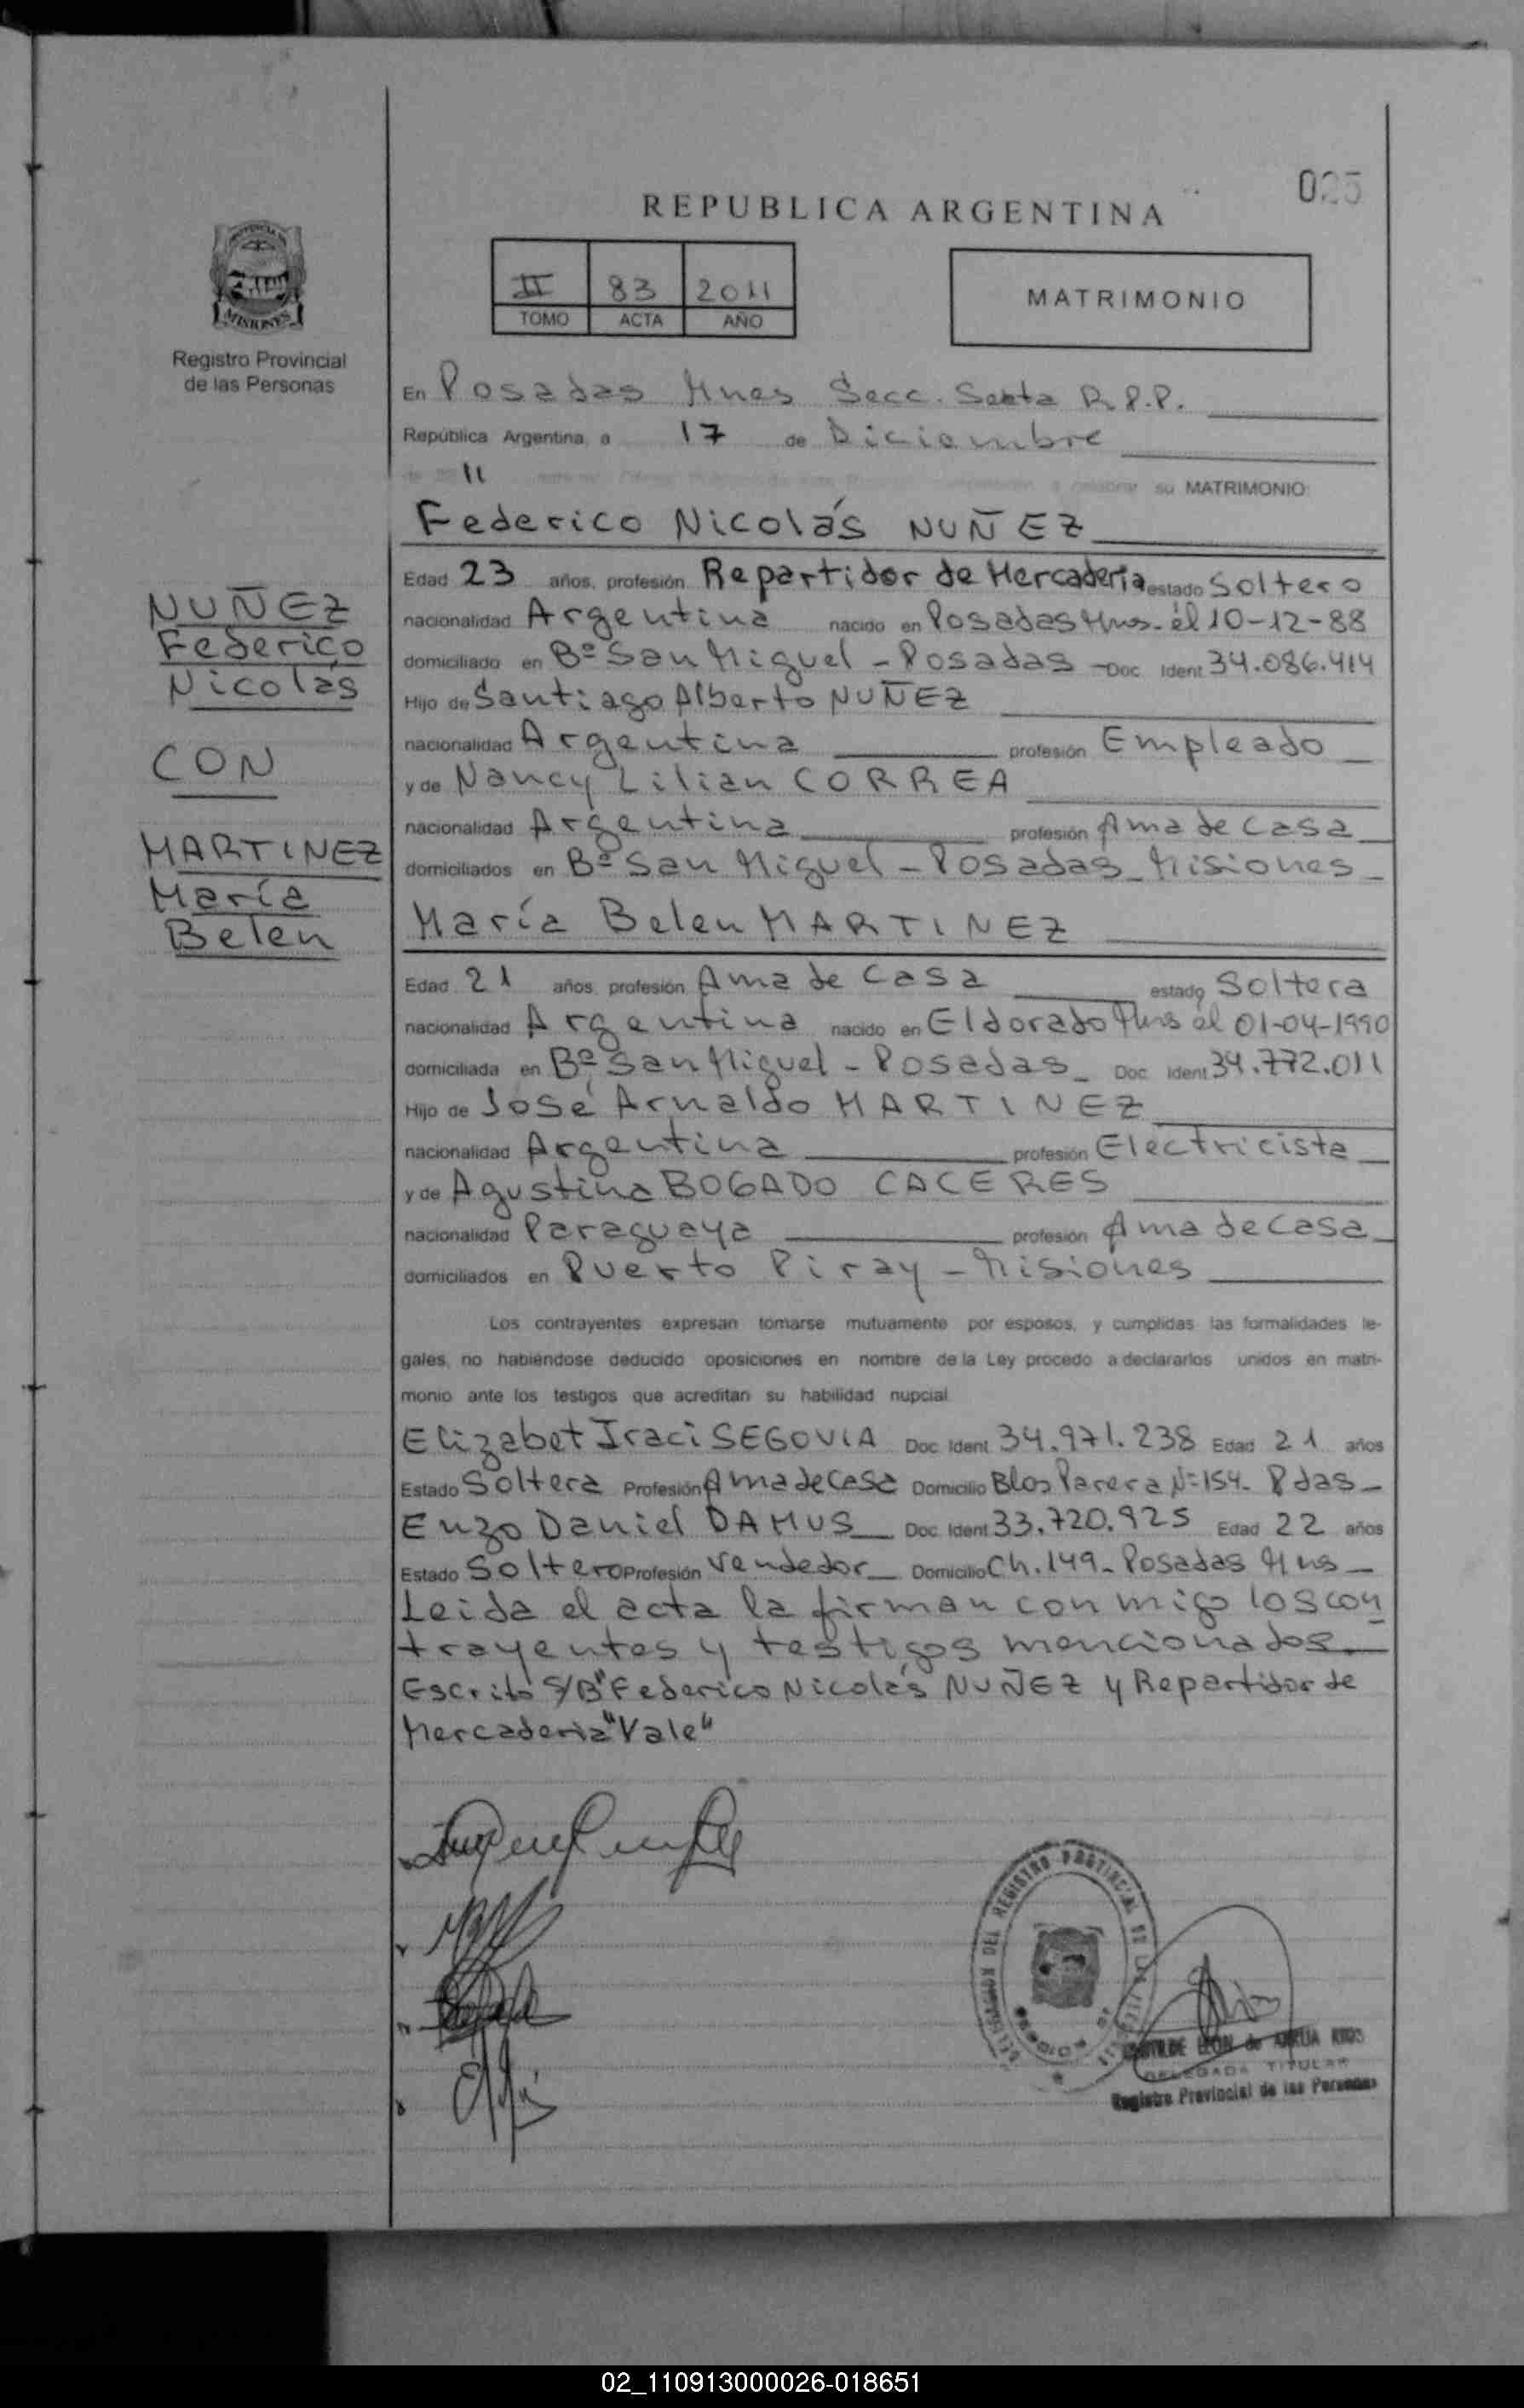 025
REPUBLICA ARGENTINA
II 83 2011
TOMO ACTA AÑO
MATRIMONIO
MISIONES
Registro Provincial
de las Personas
En Posadas Mnes Secc. Sexta R.P.P.
República Argentina, a 17 de Diciembre
11 a celebrar su MATRIMONIO:
Federico Nicolás NUÑEZ
Edad 23 años, profesión Repartidor de Mercadería estado Soltero
nacionalidad Argentina nacido en Posadas Mnes. él 10-12-88
domiciliado en Bº San Miguel - Posadas - Doc. Ident 34.086.414
Hijo de Santiago Alberto NUÑEZ
nacionalidad Argentina profesión Empleado
y de Nancy Lilian CORREA
nacionalidad Argentina profesión Ama de Casa
domiciliados en Bº San Miguel - Posadas - Misiones
María Belen MARTINEZ
Edad 21 años, profesión Ama de Casa estado Soltera
nacionalidad Argentina nacido en Eldorado Mns él 01-04-1990
domiciliada en Bº San Miguel - Posadas - Doc. Ident 34.772.011
Hijo de José Arnaldo MARTINEZ
nacionalidad Argentina profesión Electricista
y de Agustina BOGADO CACERES
nacionalidad Paraguaya profesión Ama de Casa
domiciliados en Puerto Piray - Misiones
NUÑEZ
Federico
Nicolás
CON
MARTINEZ
María
Belen
Los contrayentes expresan tomarse mutuamente por esposos, y cumplidas las formalidades le-
gales, no habiéndose deducido oposiciones en nombre de la Ley procedo a declararlos unidos en matri-
monio ante los testigos que acreditan su habilidad nupcial
Elizabet Iraci SEGOVIA Doc. Ident 34.971.238 Edad 21 años
Estado Soltera Profesión Ama de Casa Domicilio Blos Parera Nº 154- Pdas-
Enzo Daniel DAMUS Doc. Ident 33.720.925 Edad 22 años
Estado Soltero Profesión Vendedor Domicilio Ch. 149- Posadas Mns
Leida el acta la firman con migo los con
trayentes y testigos mencionados.
Escrito S/B "Federico Nicolás NUÑEZ y Repartidor de
Mercadería "Vale"
DELEGACION DEL REGISTRO PROVINCIAL DE LAS
LEON de
DELEGADA TITULAR
Registro Provincial de las Personas
02_110913000026-018651